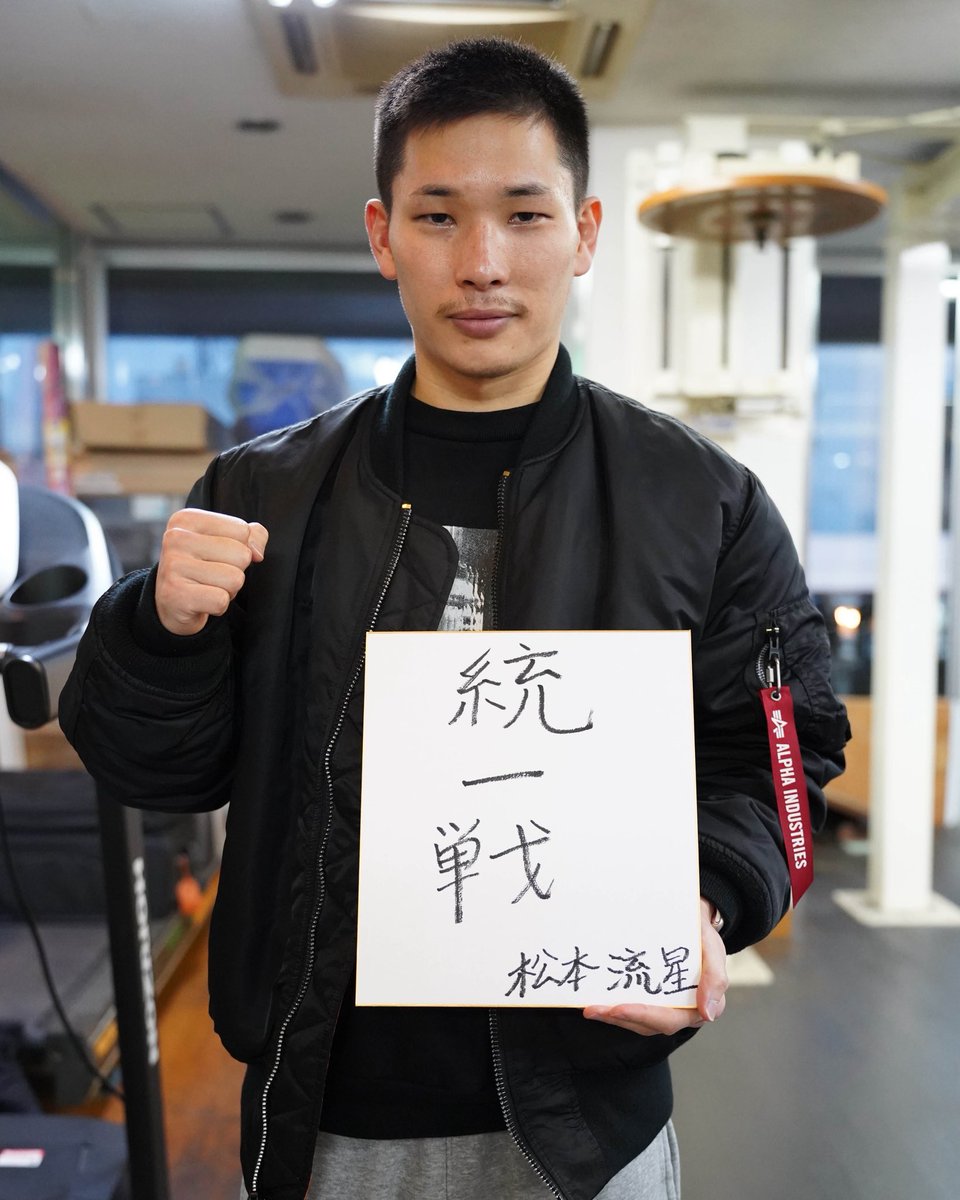 統
一
戦
松本流星
ALPHA INDUSTRIES